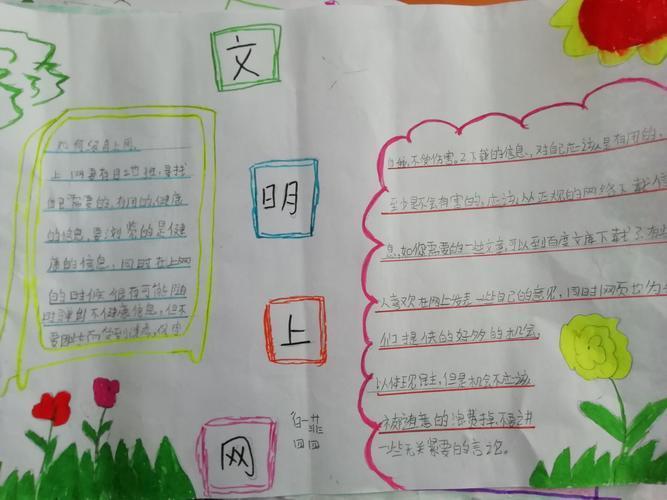 文
明
上
网
如何文明上网
上网要有目的性,寻找
自己需要的,有用的,健康
的信息,要浏览的是健
康的信息,同时在上网
的时候很有可能随
时弹到不健康信息,但不
要因此而
自我,不受伤害。2.下载的信息,对自己应该是有用的,
至少是不会有害的,应该从正规的网络下载信
息,如你需要的一些文章,可以到百度文库下载。3.有
人喜欢在网上发表一些自己的意见,同时网页也为
们提供的好多的机会,
以体现民主,但是机会不应该
被随意的浪费掉,不要讲
一些无关紧要的言论。
四四